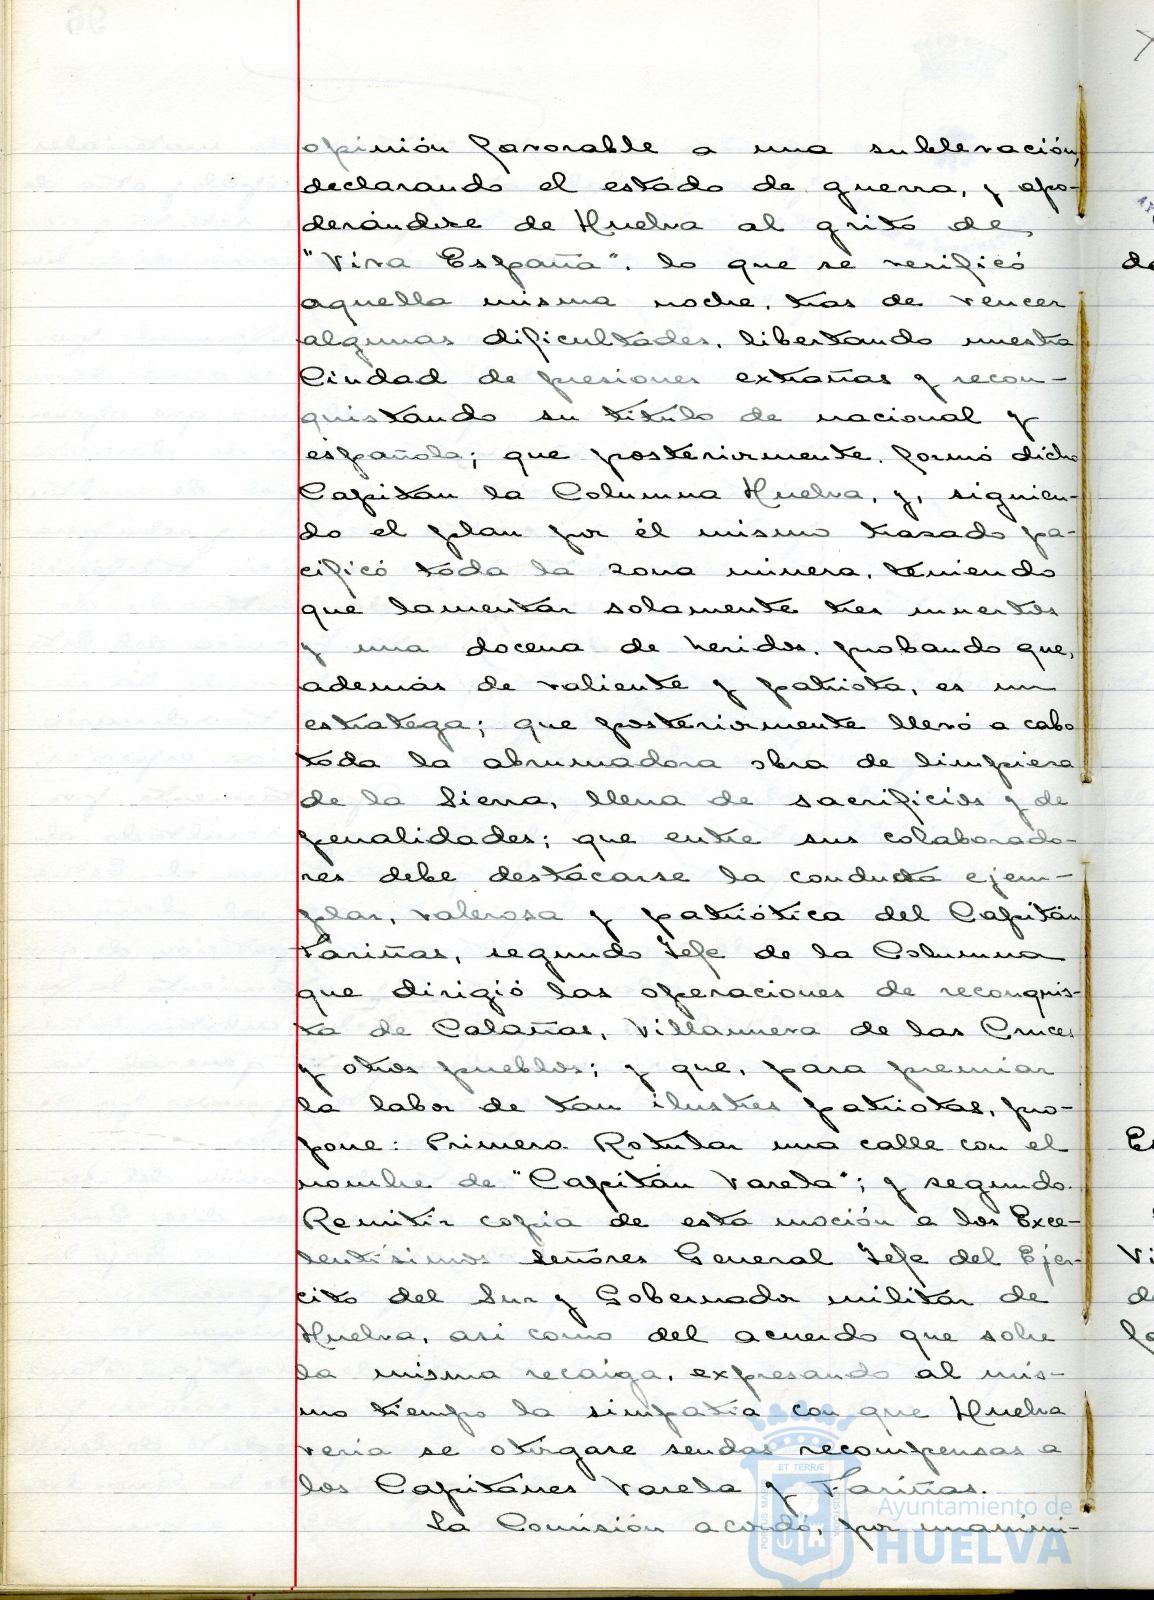 opinión favorable a una sublevación,
declarando el estado de guerra, y apo-
derándose de Huelva al grito de
"Viva España", lo que se verificó
aquella misma noche, tras de vencer
algunas dificultades, libertando nuestra
Ciudad de presiones extrañas y recon-
quistando su titulo de nacional y
española; que posteriormente, formó dicho
Capitán la Columna Huelva, y, siguien-
do el plan por él mismo trazado pa-
cificó toda la zona minera, teniendo
que lamentar solamente tres muertos
y una docena de heridos, probando que,
además de valiente y patriota, es un
estratega; que posteriormente llevó a cabo
toda la abrumadora obra de limpieza
de la Sierra, llena de sacrificios y de
penalidades; que entre sus colaborado-
res debe destacarse la conducta ejem-
plar, valerosa y patriótica del Capitán
Fariñas, segundo Jefe de la Columna
que dirigió las operaciones de reconquis-
ta de Calañas, Villanueva de las Cruces
y otros pueblos; y que, para premiar
la labor de tan ilustres patriotas, pro-
pone: Primero. Rotular una calle con el
nombre de "Capitán Varela"; y segundo.
Remitir copia de esta moción a los Exce-
lentísimos Señores General Jefe del Ejér-
cito del Sur y Gobernador militar de
Huelva, asi como del acuerdo que sobre
la misma recaiga, expresando al mis-
mo tiempo la simpatía con que Huelva
vería se otorgase sendas recompensas a
los Capitanes Varela y Fariñas.
La Comisión acordó, por unanimi-
PORTUS MARIS
ET TERRÆ
CUSTODIA
Ayuntamiento de
HUELVA